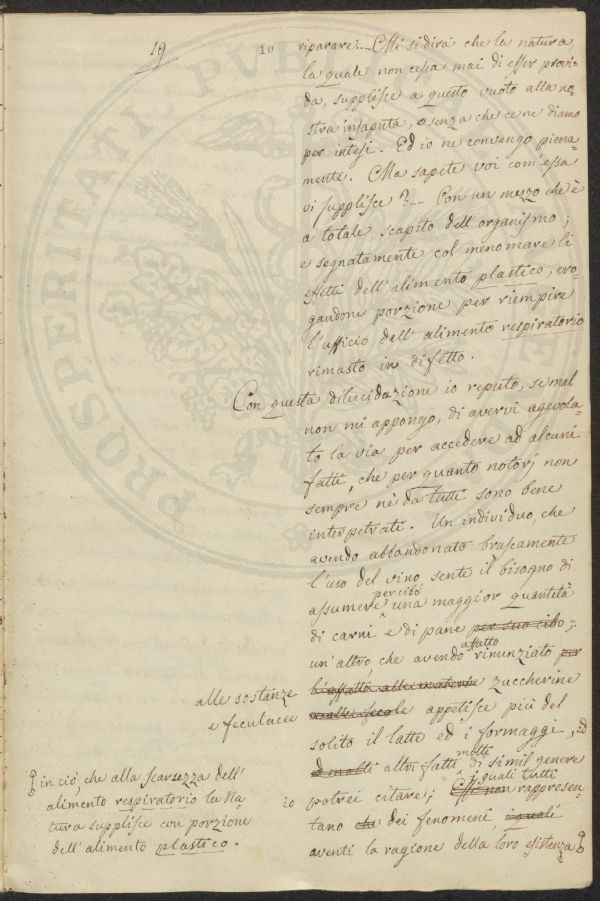 19
10
riparare.... Mi si dirà che la natura,
la quale non cessa mai di esser provi=
da, supplisce a questo vuoto alla no
stra insaputa, o senza che ce ne diamo
per intesi. Ed io ne convengo piena=
mente. Ma sapete voi com'essa
vi supplisce?... Con un mezzo che è
a totale scapito dell'organismo;
e segnatamente col menomare li
effetti dell'alimento plastico, ero=
gandone porzione per riempire
l'ufficio dell'alimento respiratorio
rimasto in difetto.
Con questa dilucidazione io reputo, se mal
non mi appongo, di avervi agevola=
to la via per accedere ad alcuni
fatti, che per quanto notorj non
sempre nè da tutti sono bene
interpetrati. Un individuo, che
avendo abbandonato bruscamente
l'uso del vino, sente il bisogno di
per cibo
assumere una maggior quantità
di carni e di pane per suo cibo;
affatto
un'altro, che avendo rinunziato per
alle sostanze
zuccherine
e feculacee
appetisce più del
solito il latte ed i formaggi, ed
molti
ed molti altri fatti di simil genere
i quali tutti
io potrei citare; Essi non rappresen=
tano che dei fenomeni, i quali
aventi la ragione della loro esistenza
in ciò, che alla scarsezza dell'
alimento respiratorio la Na
tura supplisce con porzione
dell'alimento plastico.
PROSPERITATI PVBLICAE